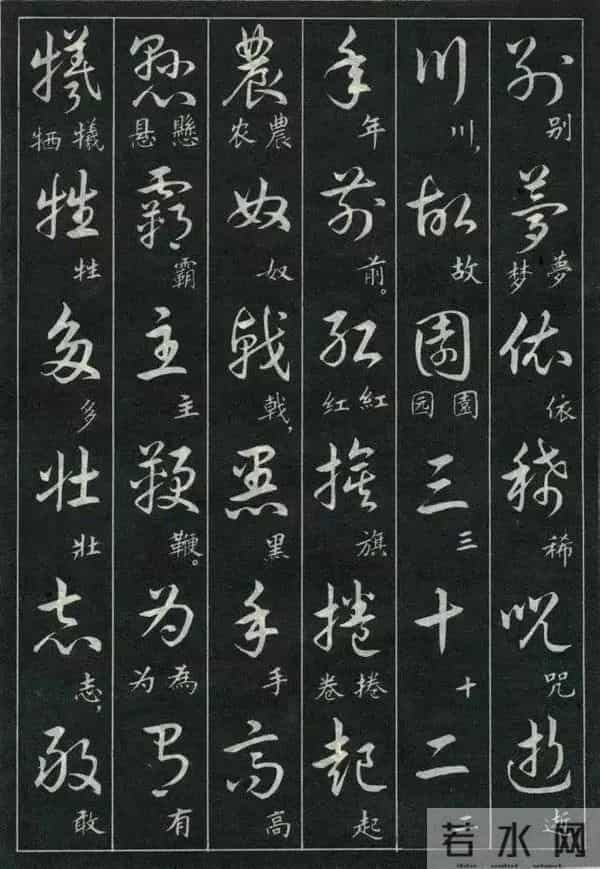 别 别 夢 夢 梦 依 依 稀 稀 呪 咒 逝 逝
川 川, 故 故 園 園 园 三 三 十 十 二
年 年 前 前。 红 紅 红 旗 旗 捲 捲 卷 起 起
農 農 农 奴 奴 戟 戟, 黑 黑 手 手 高 高
懸 懸 悬 霸 霸 主 主 鞭 鞭。 为 為 为 有 有
犧 犧 牺 牲 牲 多 多 壮 壮 志 志, 敢 敢
若水网